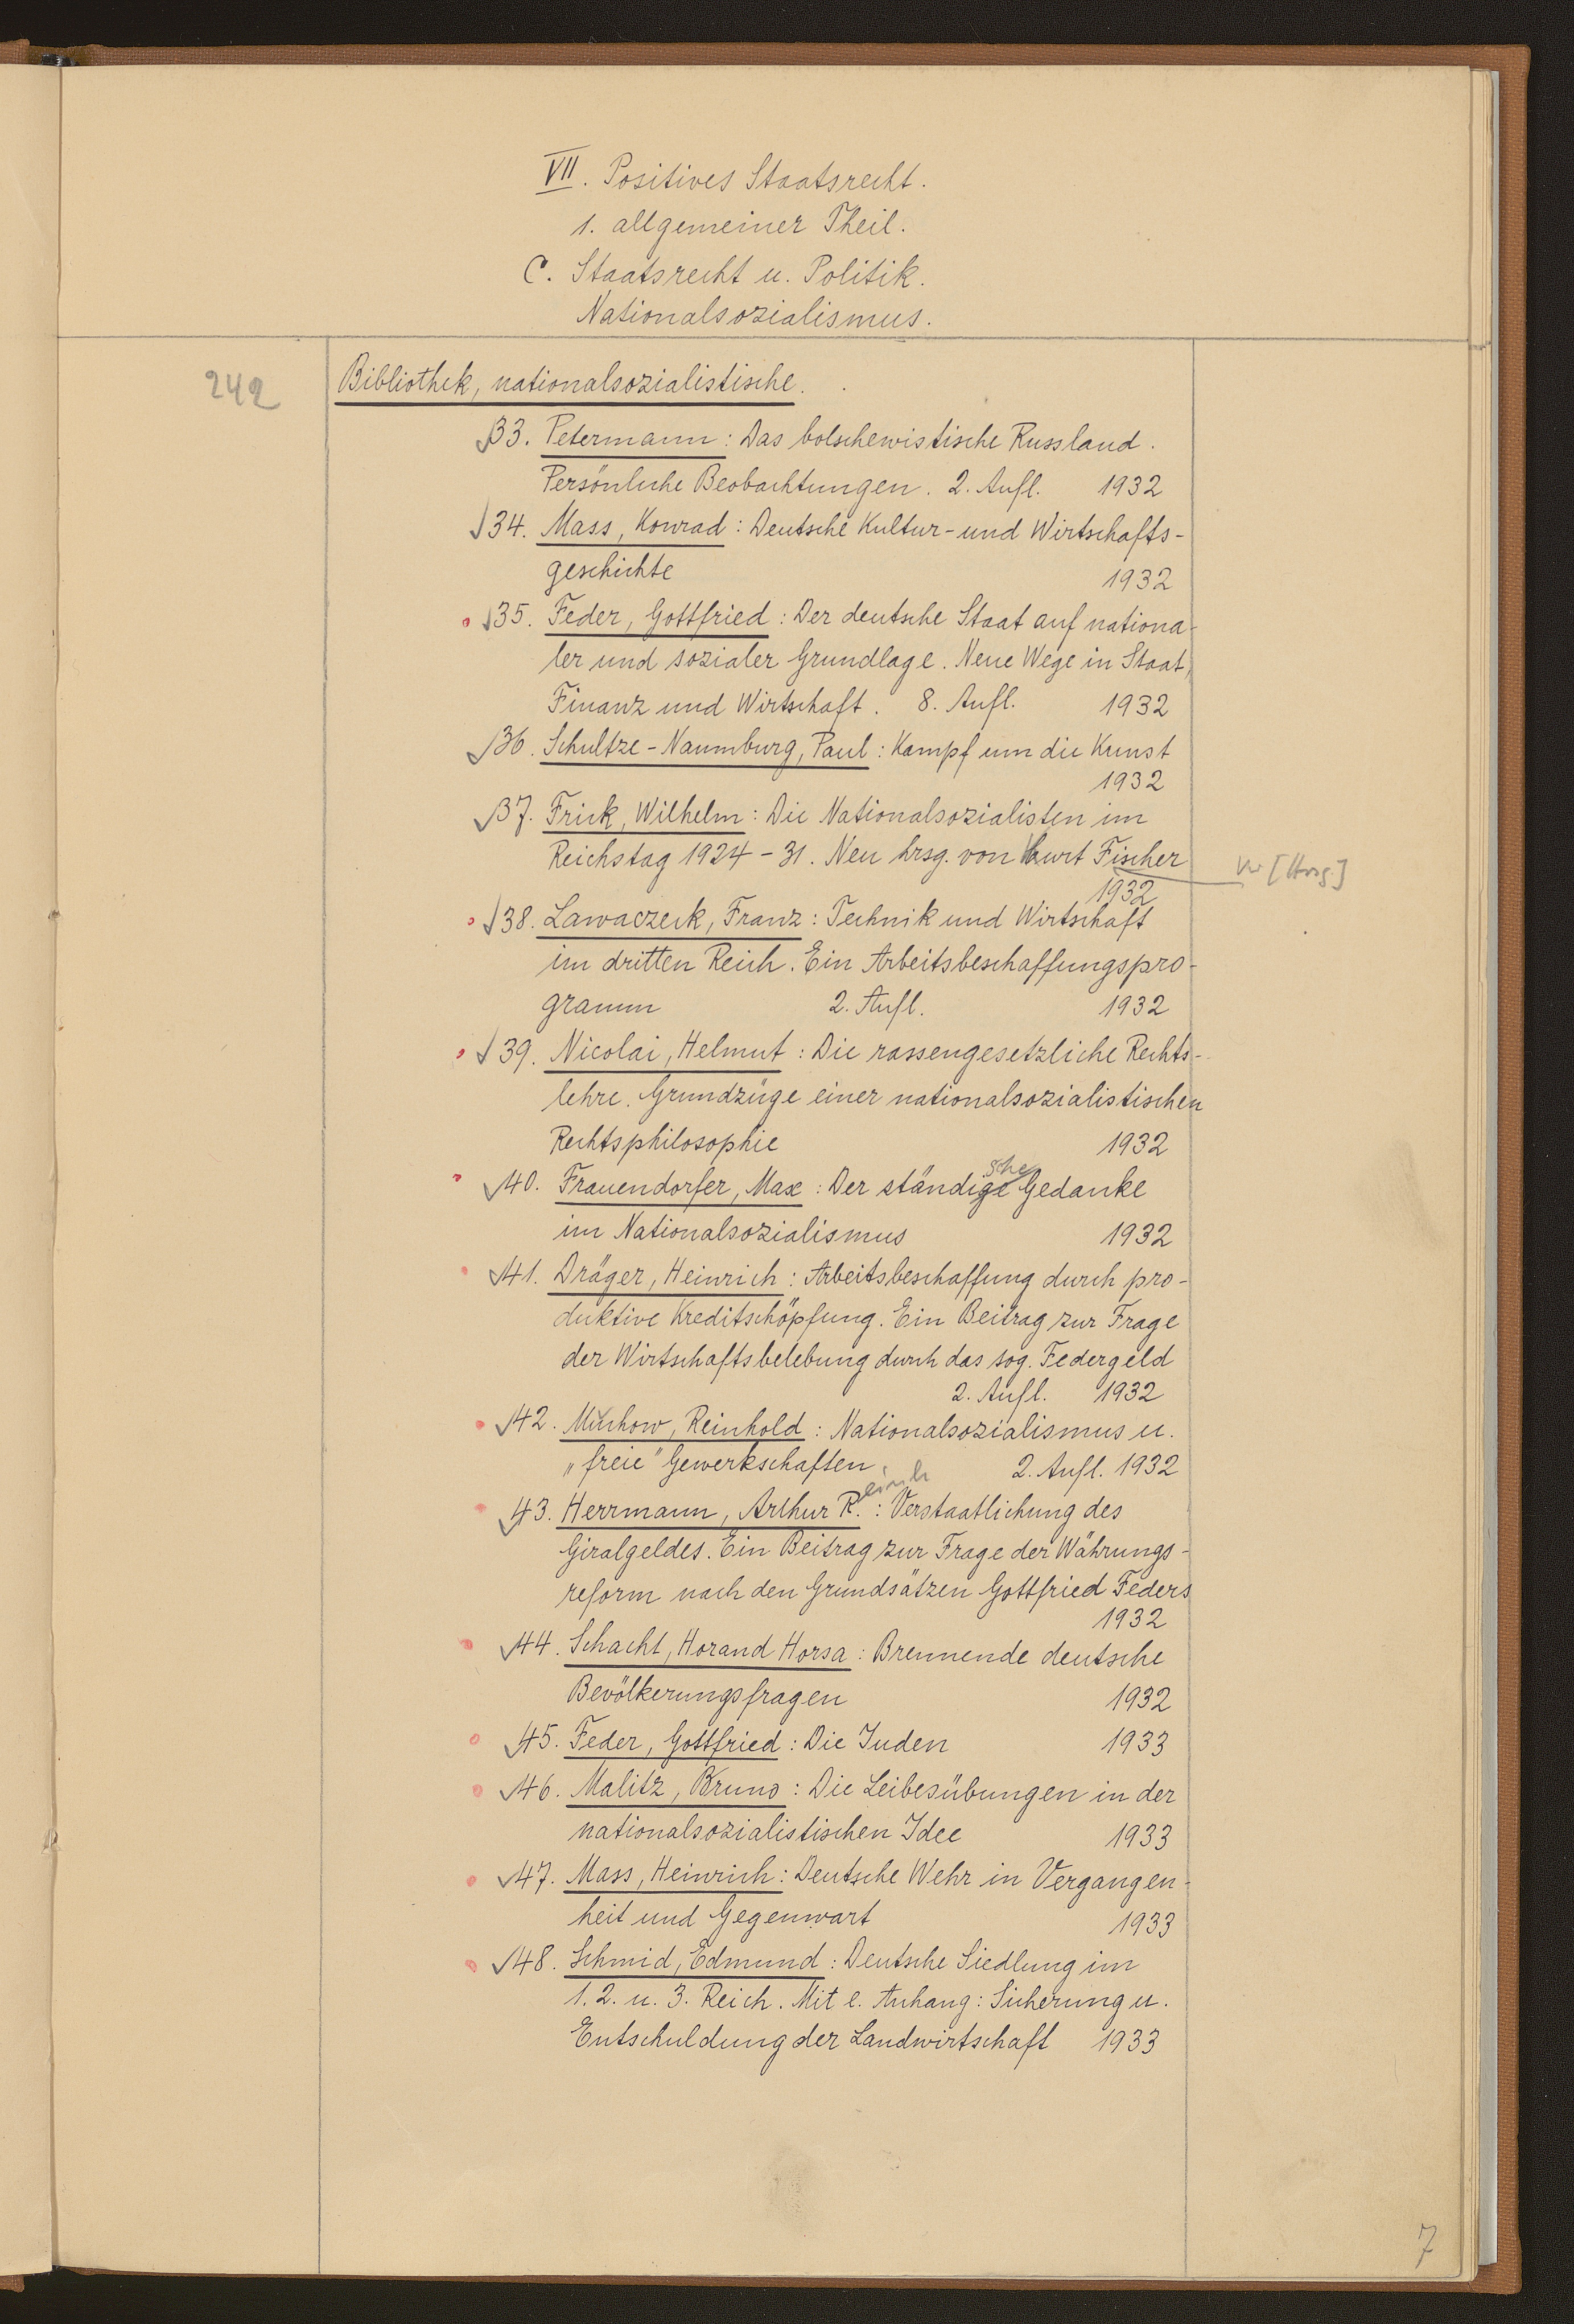 VII. Positives Staatsrecht.
1. allgemeiner Theil.
C. Staatsrecht u. Politik.
Nationalsozialismus.
242
Bibliothek, nationalsozialistische.
33. Petermann: Das bolschewistische Russland.
Persönliche Beobachtungen. 2. Aufl. 1932
34. Mass, Konrad: Deutsche Kultur- und Wirtschafts-
geschichte 1932
35. Feder, Gottfried: Der deutsche Staat auf nationa-
ler und sozialer Grundlage. Neue Wege in Staat,
Finanz und Wirtschaft. 8. Aufl. 1932
36. Schultze-Naumburg, Paul: Kampf um die Kunst
1932
37. Frick, Wilhelm: Die Nationalsozialisten im
Reichstag 1924-31. Neu hrsg. von Curt Fischer
1932
Vw [Hrsg.]
38. Lawaczeck, Franz: Technik und Wirtschaft
im dritten Reich. Ein Arbeitsbeschaffungspro-
gramm 2. Aufl. 1932
39. Nicolai, Helmut: Die rassengesetzliche Rechts-
lehre. Grundzüge einer nationalsozialistischen
Rechtsphilosophie 1932
40. Frauendorfer, Max: Der ständische Gedanke
im Nationalsozialismus 1932
41. Dräger, Heinrich: Arbeitsbeschaffung durch pro-
duktive Kreditschöpfung. Ein Beitrag zur Frage
der Wirtschaftsbelebung durch das sog. Federgeld
2. Aufl. 1932
42. Muchow, Reinhold: Nationalsozialismus u.
"freie" Gewerkschaften. 2. Aufl. 1932
43. Herrmann, Arthur R.: Verstaatlichung des
Giralgeldes. Ein Beitrag zur Frage der Währungs-
reform nach den Grundsätzen Gottfried Feders
1932
44. Schacht, Horand Horsa: Brennende deutsche
Bevölkerungsfragen 1932
45. Feder, Gottfried: Die Juden 1933
46. Malitz, Bruno: Die Leibesübungen in der
nationalsozialistischen Idee 1933
47. Mass, Heinrich: Deutsche Wehr in Vergangen-
heit und Gegenwart 1933
48. Schmid, Edmund: Deutsche Siedlung im
1. 2. u. 3. Reich. Mit e. Anhang: Sicherung u.
Entschuldung der Landwirtschaft 1933
7